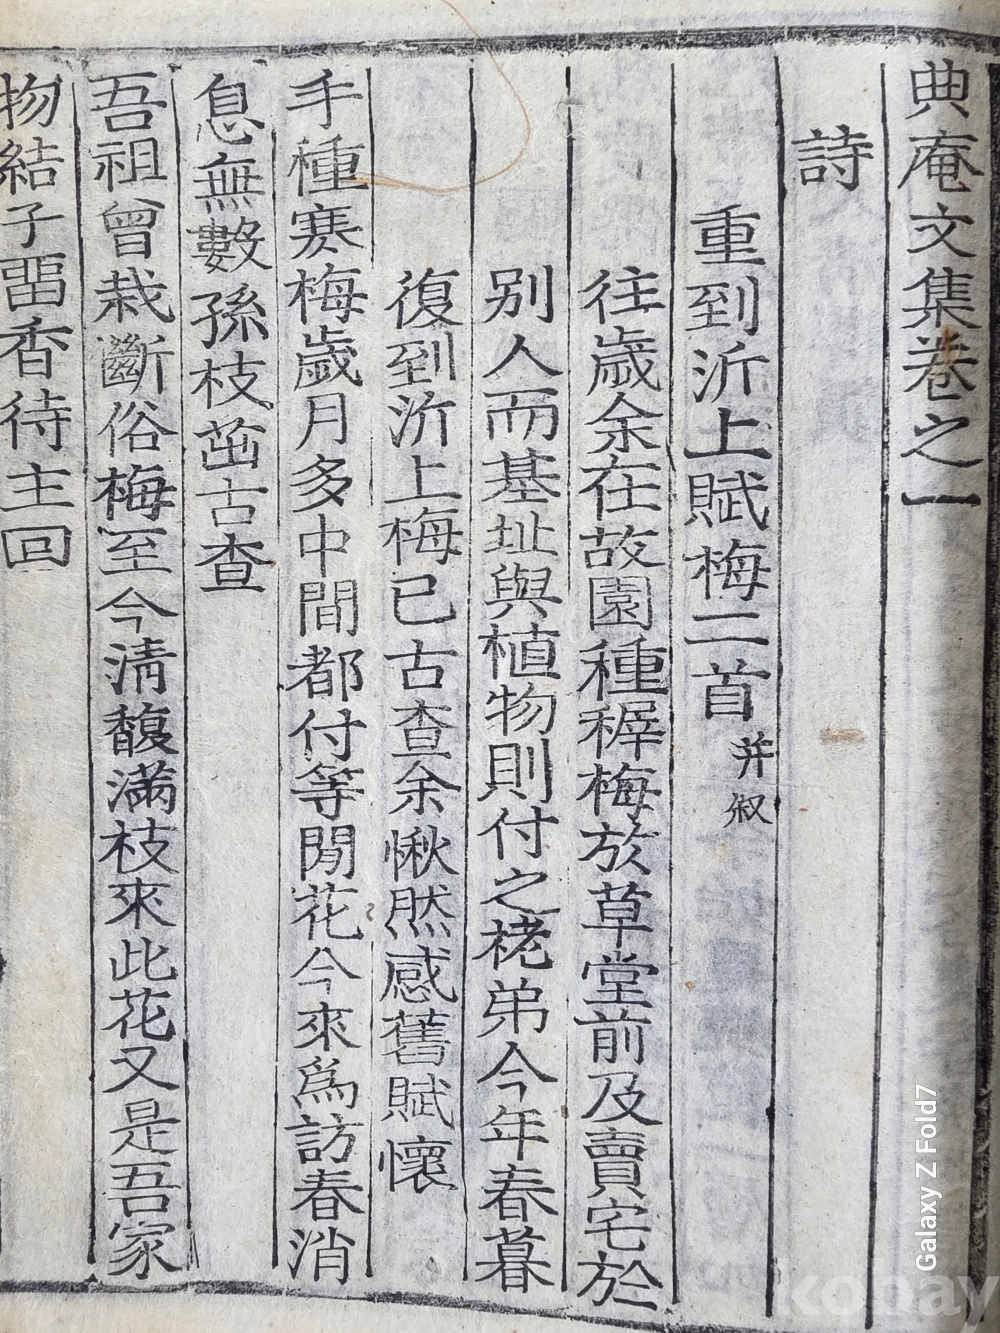 典庵文集卷之一
詩
重到沂上賦梅二首并叙
往歲余在故園種稺梅於草堂前及賣宅於
別人而基址與植物則付之從弟今年春暮
復到沂上梅已古查余愀然感舊賦懷
手種寒梅歲月多中間都付等閒花今來爲訪春消
息無數孫枝茁古查
吾祖曾栽斷俗梅至今淸馥滿枝來此花又是吾家
物結子畱香待主回
Galaxy Z Fold7
kobay